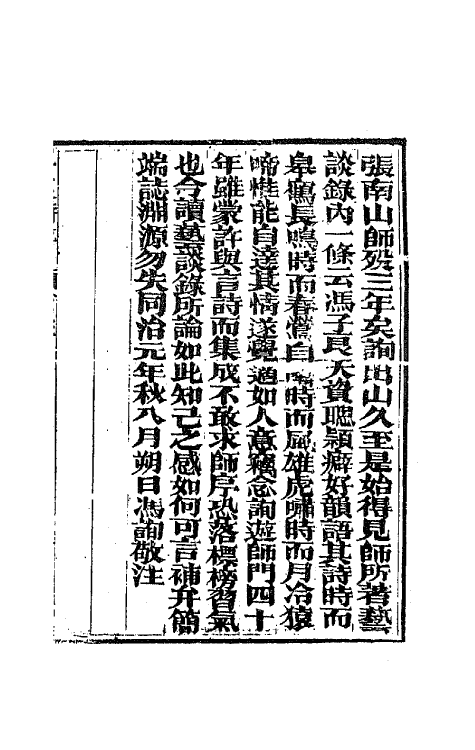 張南山師殁三年矣詢出山久至是始得見師所著藝
談錄內一條云馮子良天資聰穎癖好韻語其詩時而
皐鶴長鳴時而春鶯自囀時而風雄虎嘯時而月冷猿
啼惟能自達其情遂覺適如人意竊念詢遊師門四十
年雖蒙許與言詩而集成不敢求師序恐落標榜習氣
也今讀藝談錄所論如此知己之感如何可言補弁簡
端誌淵源勿失同治元年秋八月朔日馮詢敬注